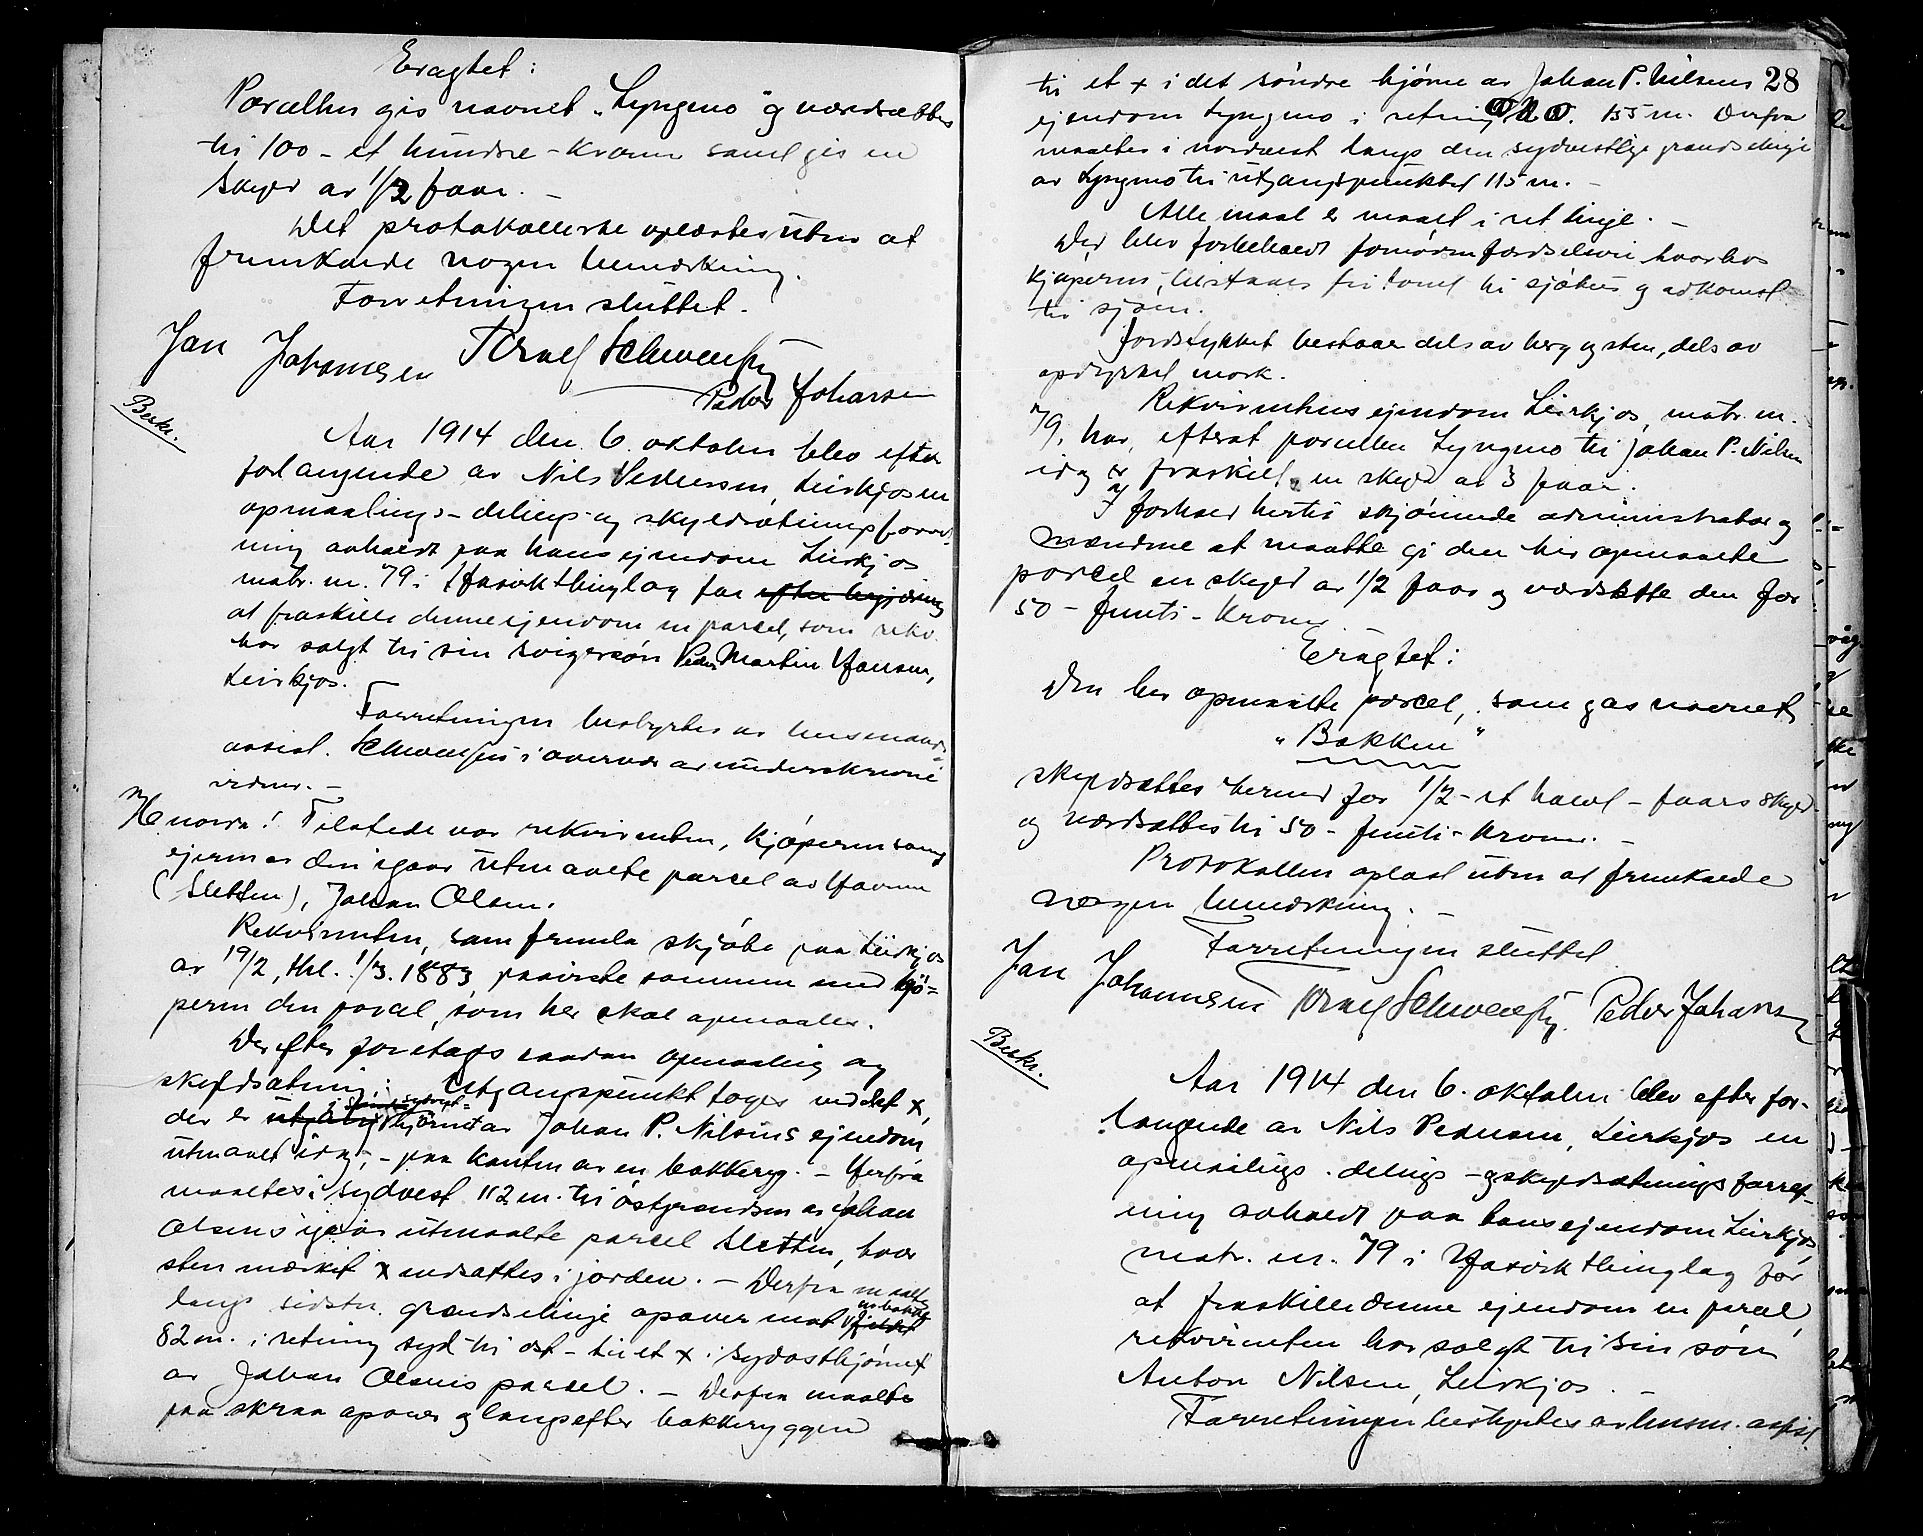 Eragtet:
Parcellen gis navnet „Lyngmo" og værdsættes
til 100 - et hundre - Kroner samt gis en
skyld av 1/2 faar. -
Det protokollerte oplæstes uten at
fremkalde nogen bemærkning.
Forretningen sluttet.
Jan Johannesen Israel Schwensen
Peder Johansen
Beskr.
Aar 1914 den 6. oktober blev efter
forlangende av Nils Pedersen, Leirkjos en
opmaalings- delings- og skyldsætningsforret-
ning avholdt paa hans ejendom Leirkjos
matr. nr. 79 i thinglag for efter begjæring
at fraskille denne ejendom en parcel, som rekv.
har solgt til sin svigersøn Peder Martin Hansen,
Leirkjos.
Forretningen bestyrtes av lensmands-
assist. Schwensen i overvær av underskrevne
vidner. -
Herunder! Tilstede var rekvirenten, kjøperen samt
ejeren av den igaar utmaalte parcel av
(Sletten), Johan Olsen.
Rekvirenten, som fremla skjøte paa Leirkjos
av 19/2, thl. 1/3. 1883, paaviste sammen med kjø=
peren den parcel, som her skal opmaales.
Derefter foretages saadan opmaaling og
skyldsætning: Utgangspunkt toges ved det x,
der er i hjørnet av Johan P. Nilsens ejendom
utmaalt idag, - paa kanten av en bakkeryg. - Herfra
maaltes i sydvest 112 m. til østgrændsen av Johan
Olsens igaar utmaalte parcel Sletten, hvor
sten mærket x nedsattes i jorden. - Derfra maaltes
langs sidstn. grændselinje opover mot
82 m. i retning syd til øst - til et x i sydøsthjørnet
av Johan Olsens parcel. - Derfra maaltes
paa skraa opover og langsefter bakkeryggen
28
til et x i det søndre hjørne av Johan P. Nilsens
ejendom Lyngmo i retning O N O. 155 m. Derfra
maaltes i nordvest langs den sydvestlige grændselinje
av Lyngmo til utgangspunktet 115 m. -
Alle maal er maalt i ret linje. -
Der blev forbeholdt fornøden færdselsvei hvorhos
kjøperen tilstaaes fri tomt til sjøhus og adkomst
til sjøen.
Jordstykket bestaaer dels av berg og sten, dels av
opdyrket mark.
Rekvirentens ejendom Leirkjos, matr. nr.
79, har, efterat parcellen Lyngmo til Johan P. Nilsen
idag er fraskilt, en skyld av 3 faar.
I forhold hertil skjønnede administrator og
mændene at maatte gi den her opmaalte
parcel en skyld av 1/2 faar og værdsætte den for
50 - femti - Kroner.
Eragtet:
Den her opmaalte parcel, som gas navnet
„Bakken"
skyldsættes herved for 1/2 - et halvt - faars skyld
og værdsættes til 50 - femti - Kroner. -
Protokollen oplæst uten at fremkalde
nogen bemærkning. -
Forretningen sluttet
Jan Johannesen Israel Schwensen. Peder Johansen
Beskr.
Aar 1914 den 6. oktober blev efter for-
langende av Nils Pedersen, Leirkjos en
opmaalings- delings- og skyldsætningsforret-
ning avholdt paa hans ejendom Leirkjos,
matr. nr. 79 i thinglag for
at fraskille denne ejendom en parcel,
rekvirenten har solgt til sin søn
Anton Nilsen, Leirkjos. -
Forretningen bestyrtes av lensm. assist.